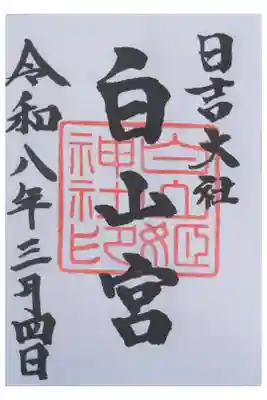 日吉大社
白山宮
白山姫
神社印
令和八年三月四日